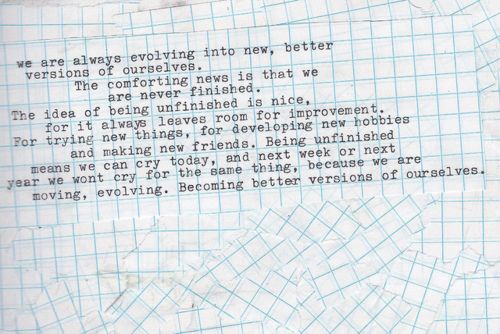 we are always evolving into new, better
versions of ourselves.
The comforting news is that we
are never finished.
The idea of being unfinished is nice,
for it always leaves room for improvement.
For trying new things, for developing new hobbies
and making new friends. Being unfinished
means we can cry today, and next week or next
year we wont cry for the same thing, because we are
moving, evolving. Becoming better versions of ourselves.